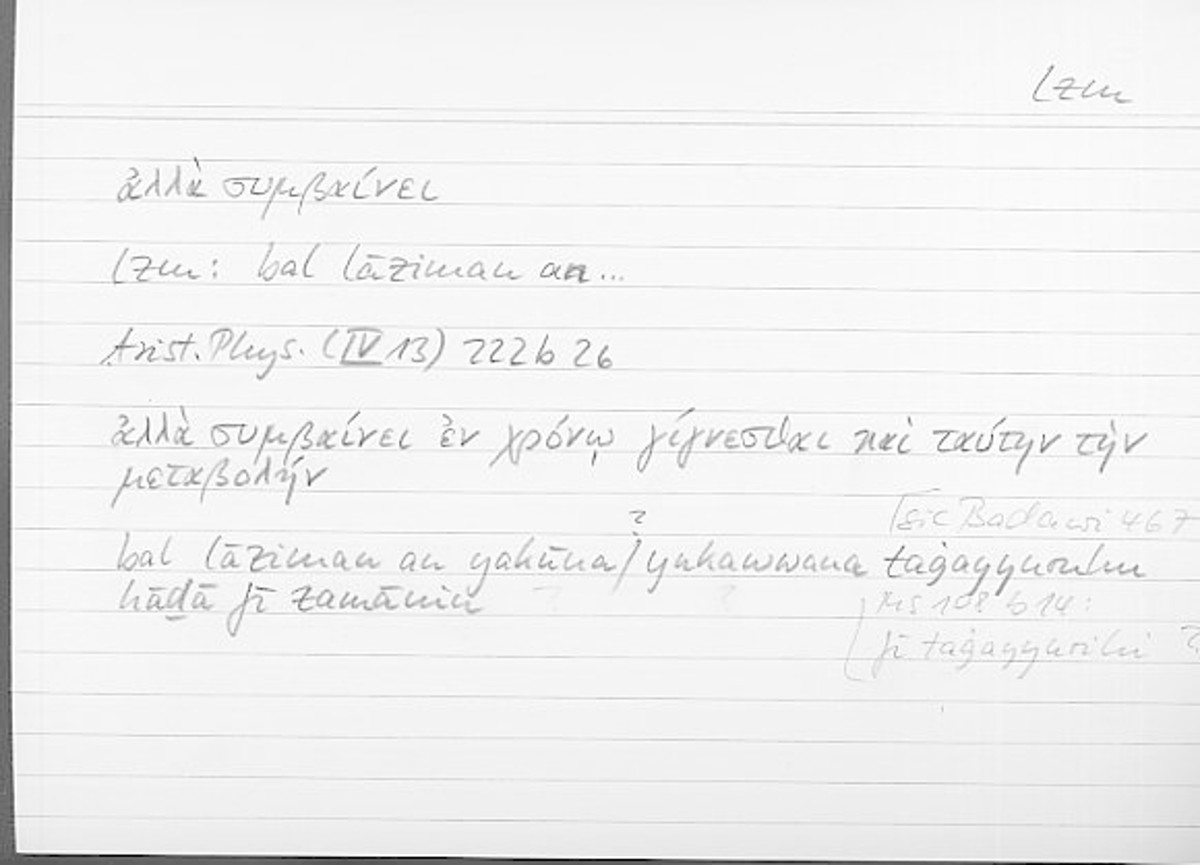 lzm
ἀλλὰ συμβαίνει
lzm: bal lāziman an...
Arist. Phys. (IV 13) 222 b 26
ἀλλὰ συμβαίνει ἐν χρόνῳ γίγνεσθαι καὶ ταύτην τὴν
μεταβολήν
[sic Badawi 467
?
bal lāziman an yakūna/yukawwana taġayyuruhu
hāḏā fī zamānin
MS 108 b 14:
fī taġayyurihi ?